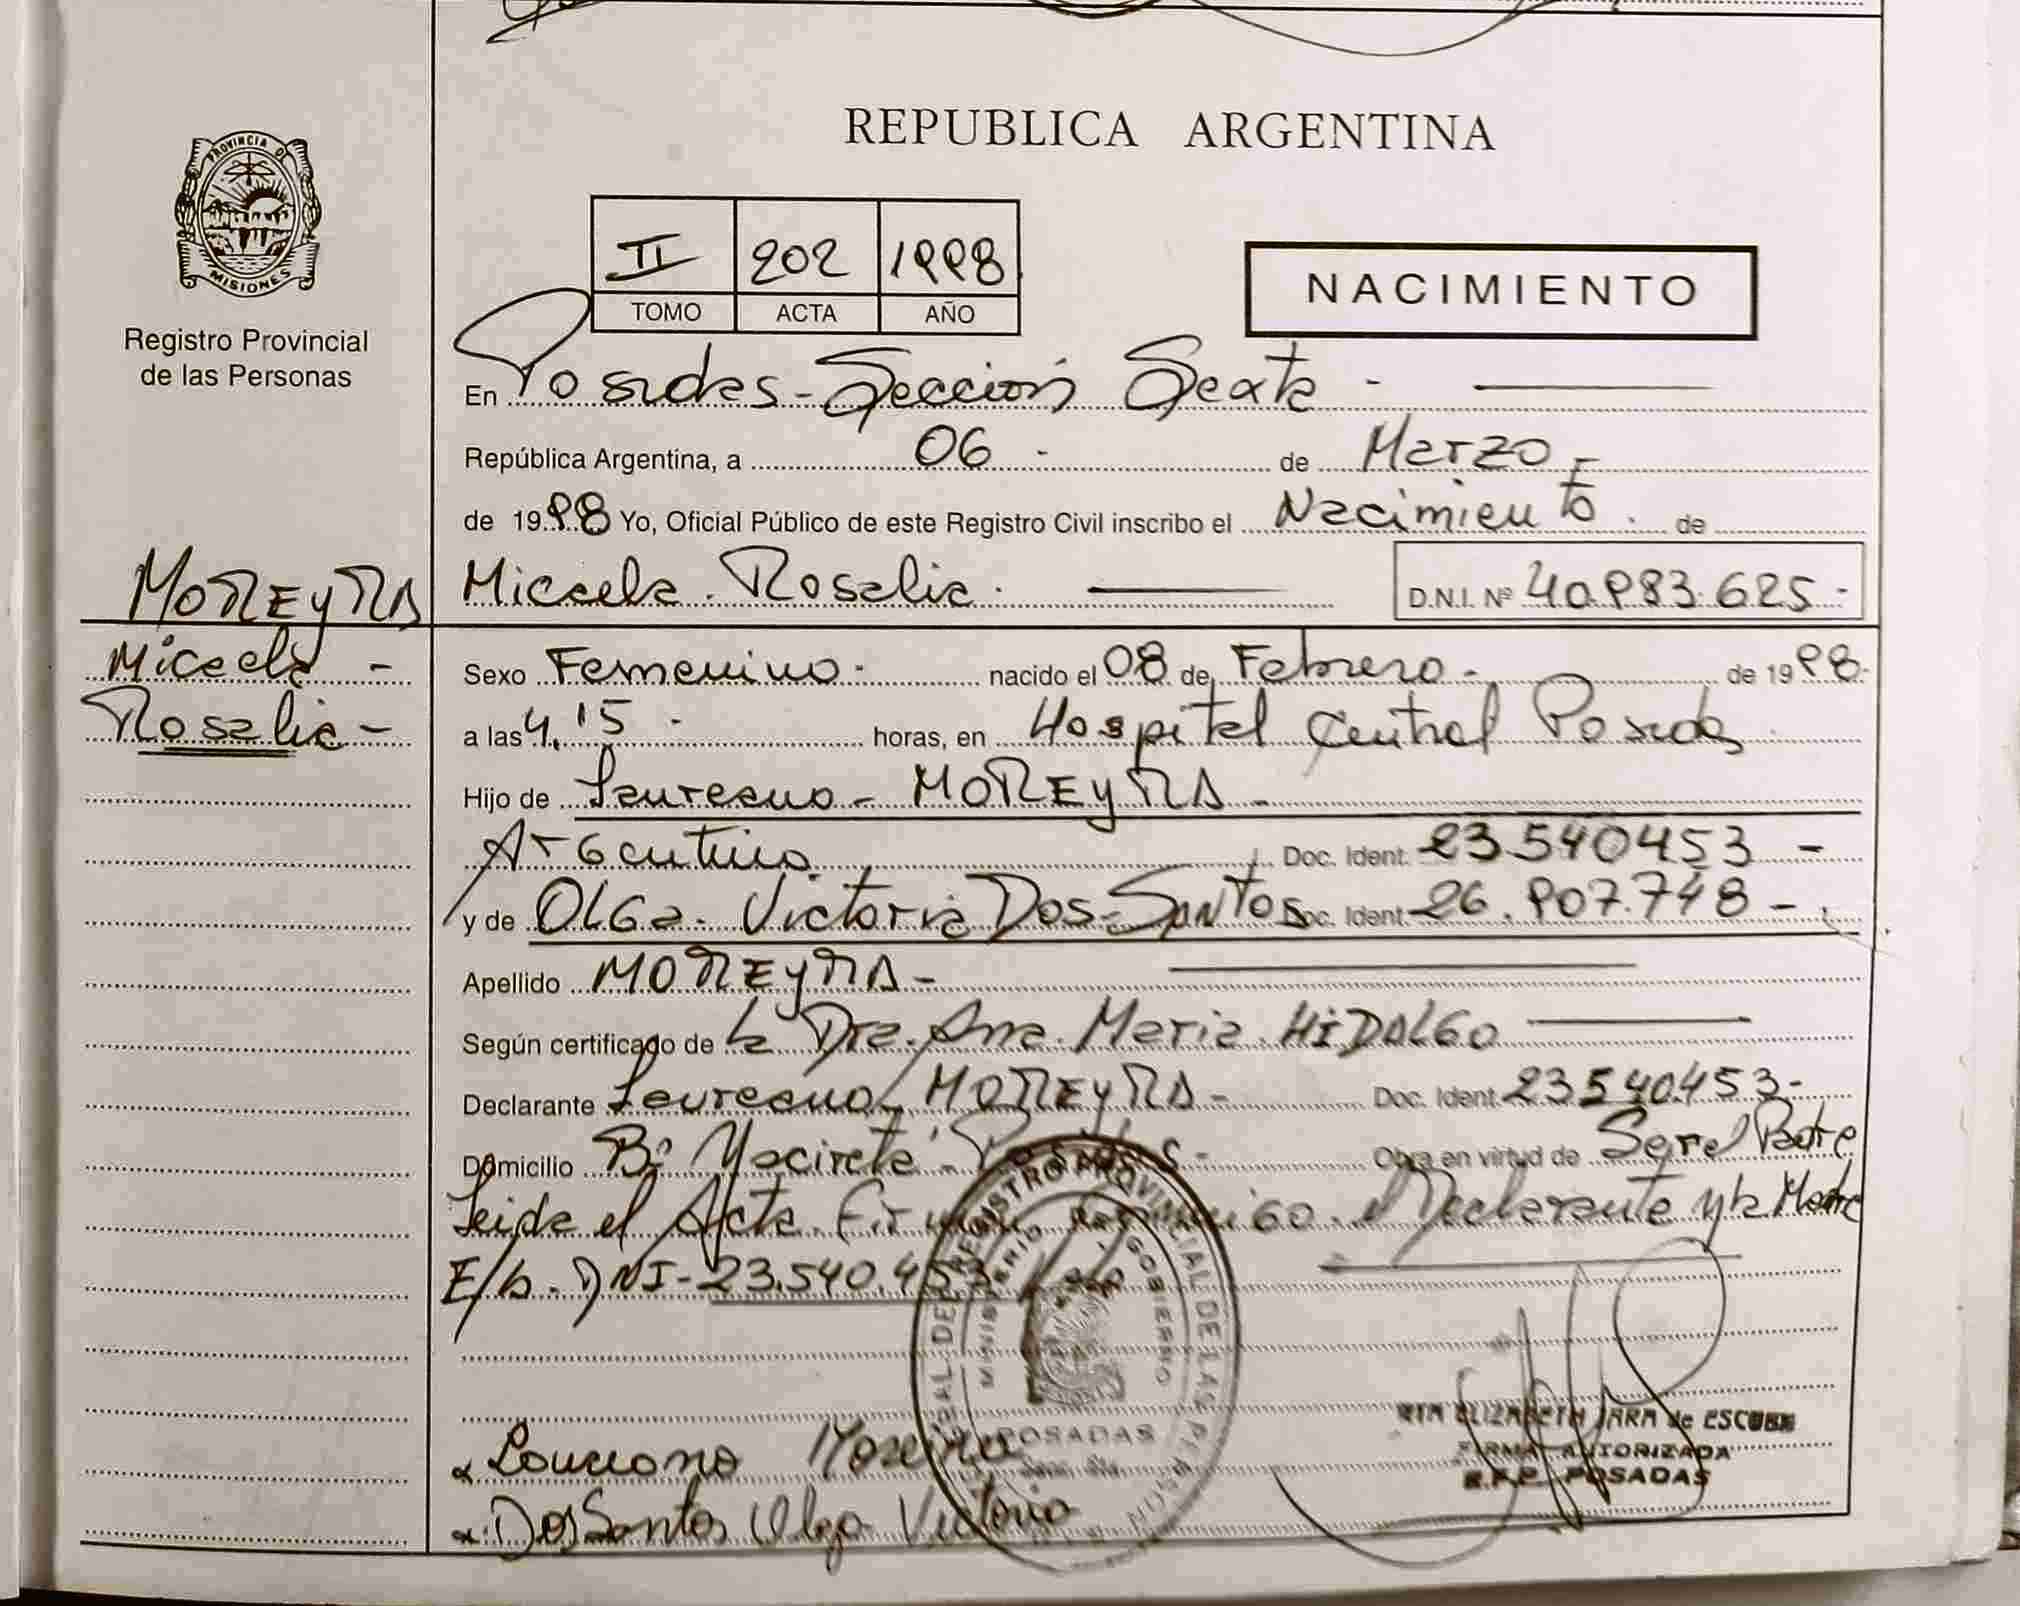 REPUBLICA ARGENTINA
PROVINCIA DE
MISIONES
Registro Provincial
de las Personas
II 202 1998
TOMO ACTA AÑO
NACIMIENTO
En Posadas - Sección Sexta -
República Argentina, a 06 - de Marzo -
de 1998 Yo, Oficial Público de este Registro Civil inscribo el Nacimiento. de
Micaela. Rosalia. D.N.I. Nº 40.983.625.-
MOREYRA
Micaela -
Rosalia -
Sexo Femenino. nacido el 08 de Febrero. de 1998.
a las 4,15 - horas, en Hospital Central Posadas
Hijo de Laureano - MOREYRA -
Argentino. Doc. Ident. 23.540453 -
y de OLGa. Victoria Dos-Santos Doc. Ident. 26.907.748 -
Apellido MOREYRA -
Según certificado de la Dra. Ana. Maria. HIDALGO
Declarante Laureano MOREYRA - Doc. Ident. 23540.453-
Domicilio Bº Yacireta - Posadas - Obra en virtud de Ser el Padre
Leida el Acta. Firman conmigo. el Declarante y la Madre
E/L. DNI - 23.540.453
REGISTRO PROVINCIAL DE LAS PERSONAS
MINISTERIO DE GOBIERNO
POSADAS
RTA ELIZABETH JARA de ESCOBE
FIRMA AUTORIZADA
R.P.P. POSADAS
Moreira
Dos Santos Olga Victoria